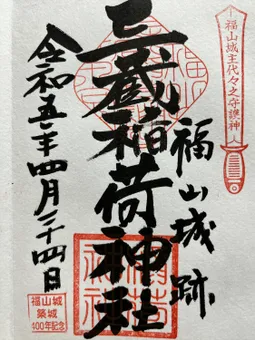 福山城主代々之守護神
福山城跡
三蔵稲荷神社
令和五年四月二十四日
福山城
築城
400年記念